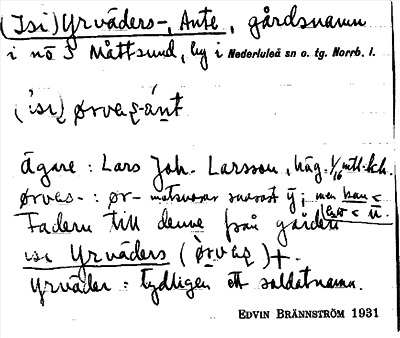 (Isi) Yrväders-, Ante, gårdsnamn
i nö 3 Måttsund, by i Nederluleå sn o. tg. Norrb. l.
('isi̜ ørvaʂ-ánt
Ägare: Lars Joh. Larsson, häg. 1/16 mtl.
ørvas- : ør- motsvarar snarast ÿ; men kan <
Fadern till denne från gården
isi Yrväders (ørvaʂ) +.
Yrväder : tydligen ett soldatnamn.
EDVIN BRÄNNSTRÖM 1931